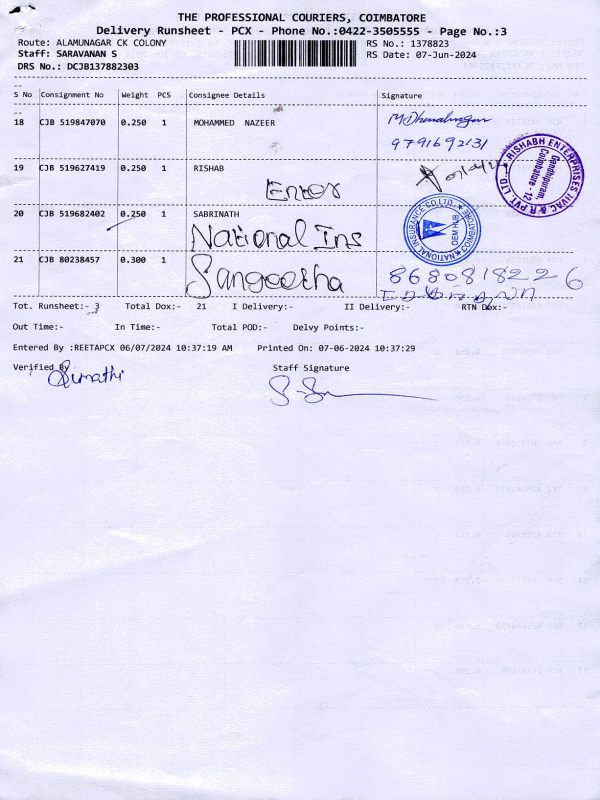 THE PROFESSIONAL COURIERS, COIMBATORE
Delivery Runsheet - PCX - Phone No.:0422-3505555 - Page No.:3
Route: ALAMUNAGAR CK COLONY
RS No.: 1378823
Staff: SARAVANAN S
RS Date: 07-Jun-2024
DRS No.: DCJB137882303
S No Consignment No Weight PCS Consignee Details Signature
18 CJB 519847070 0.250 1 MOHAMMED NAZEER
9791692131
19 CJB 519627419 0.250 1 RISHAB
Enter
RISHABH ENTERPRISES HVAC & R PVT. LTD.
Gandhipuram,
Coimbatore - 12
20 CJB 519682402 0.250 1 SABRINATH
National Ins
NATIONAL INSURANCE CO LTD. COIMBATORE
OEM HUB
21 CJB 80238457 0.300 1
Sangeetha
8680818226
Tot. Runsheet:- 3 Total Dox:- 21 I Delivery:- II Delivery:- RTN Dox:-
Out Time:- In Time:- Total POD:- Delvy Points:-
Entered By :REETAPCX 06/07/2024 10:37:19 AM Printed On: 07-06-2024 10:37:29
Verified By Staff Signature
Sumathi